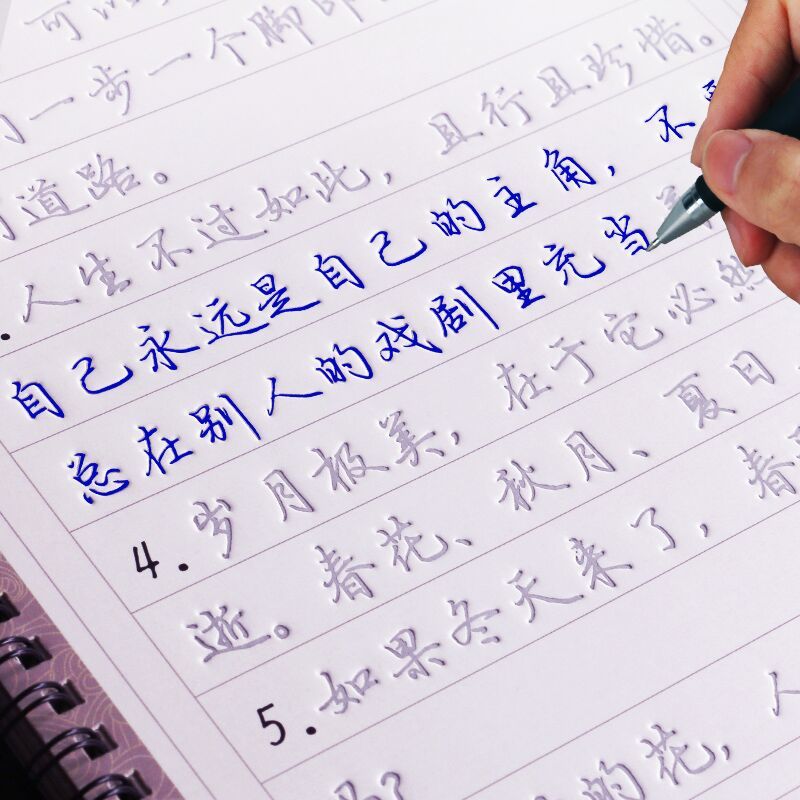 可以
一步一个脚印
道路。
人生不过如此，且行且珍惜。
自己永远是自己的主角，不
总在别人的戏剧里充当
4. 岁月极美，在于它必然
逝。春花、秋月、夏日
5. 如果冬天来了，春
的花，人